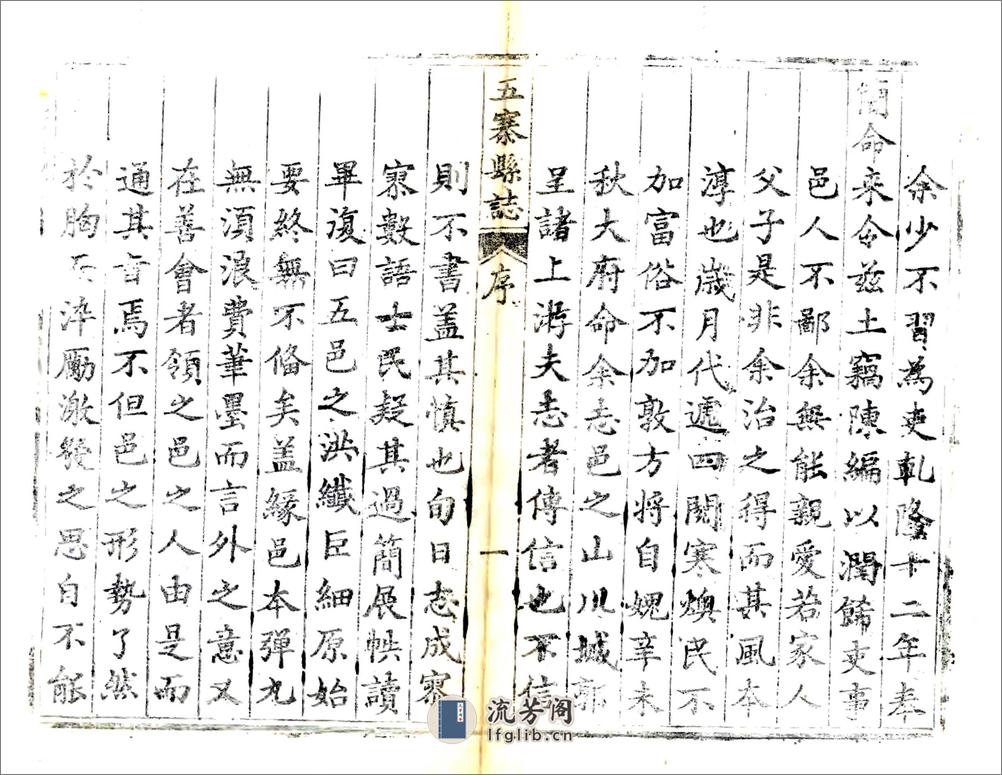 余少不習為吏乹隆十二年奉
簡命来令兹土竊陳編以潤餙吏事
邑人不鄙余無能親愛若家人
父子是非余治之得而其風本
淳也歳月代遞四閱寒燠民不
加富俗不加敦方將自媿辛未
秋大府命余志邑之山川城郭
呈諸上游夫志者傳信也不信
五寨縣誌
序
一
則不書盖其慎也旬日志成寥
寥數語士民疑其過簡展帙讀
畢復曰五邑之洪纖巨細原始
要終無不俻矣盖緣邑本彈丸
無須浪費筆墨而言外之意又
在善會者領之邑之人由是而
通其旨焉不但邑之形勢了然
於胸而淬勵激發之思自不能
流芳阁
lfglib.cn